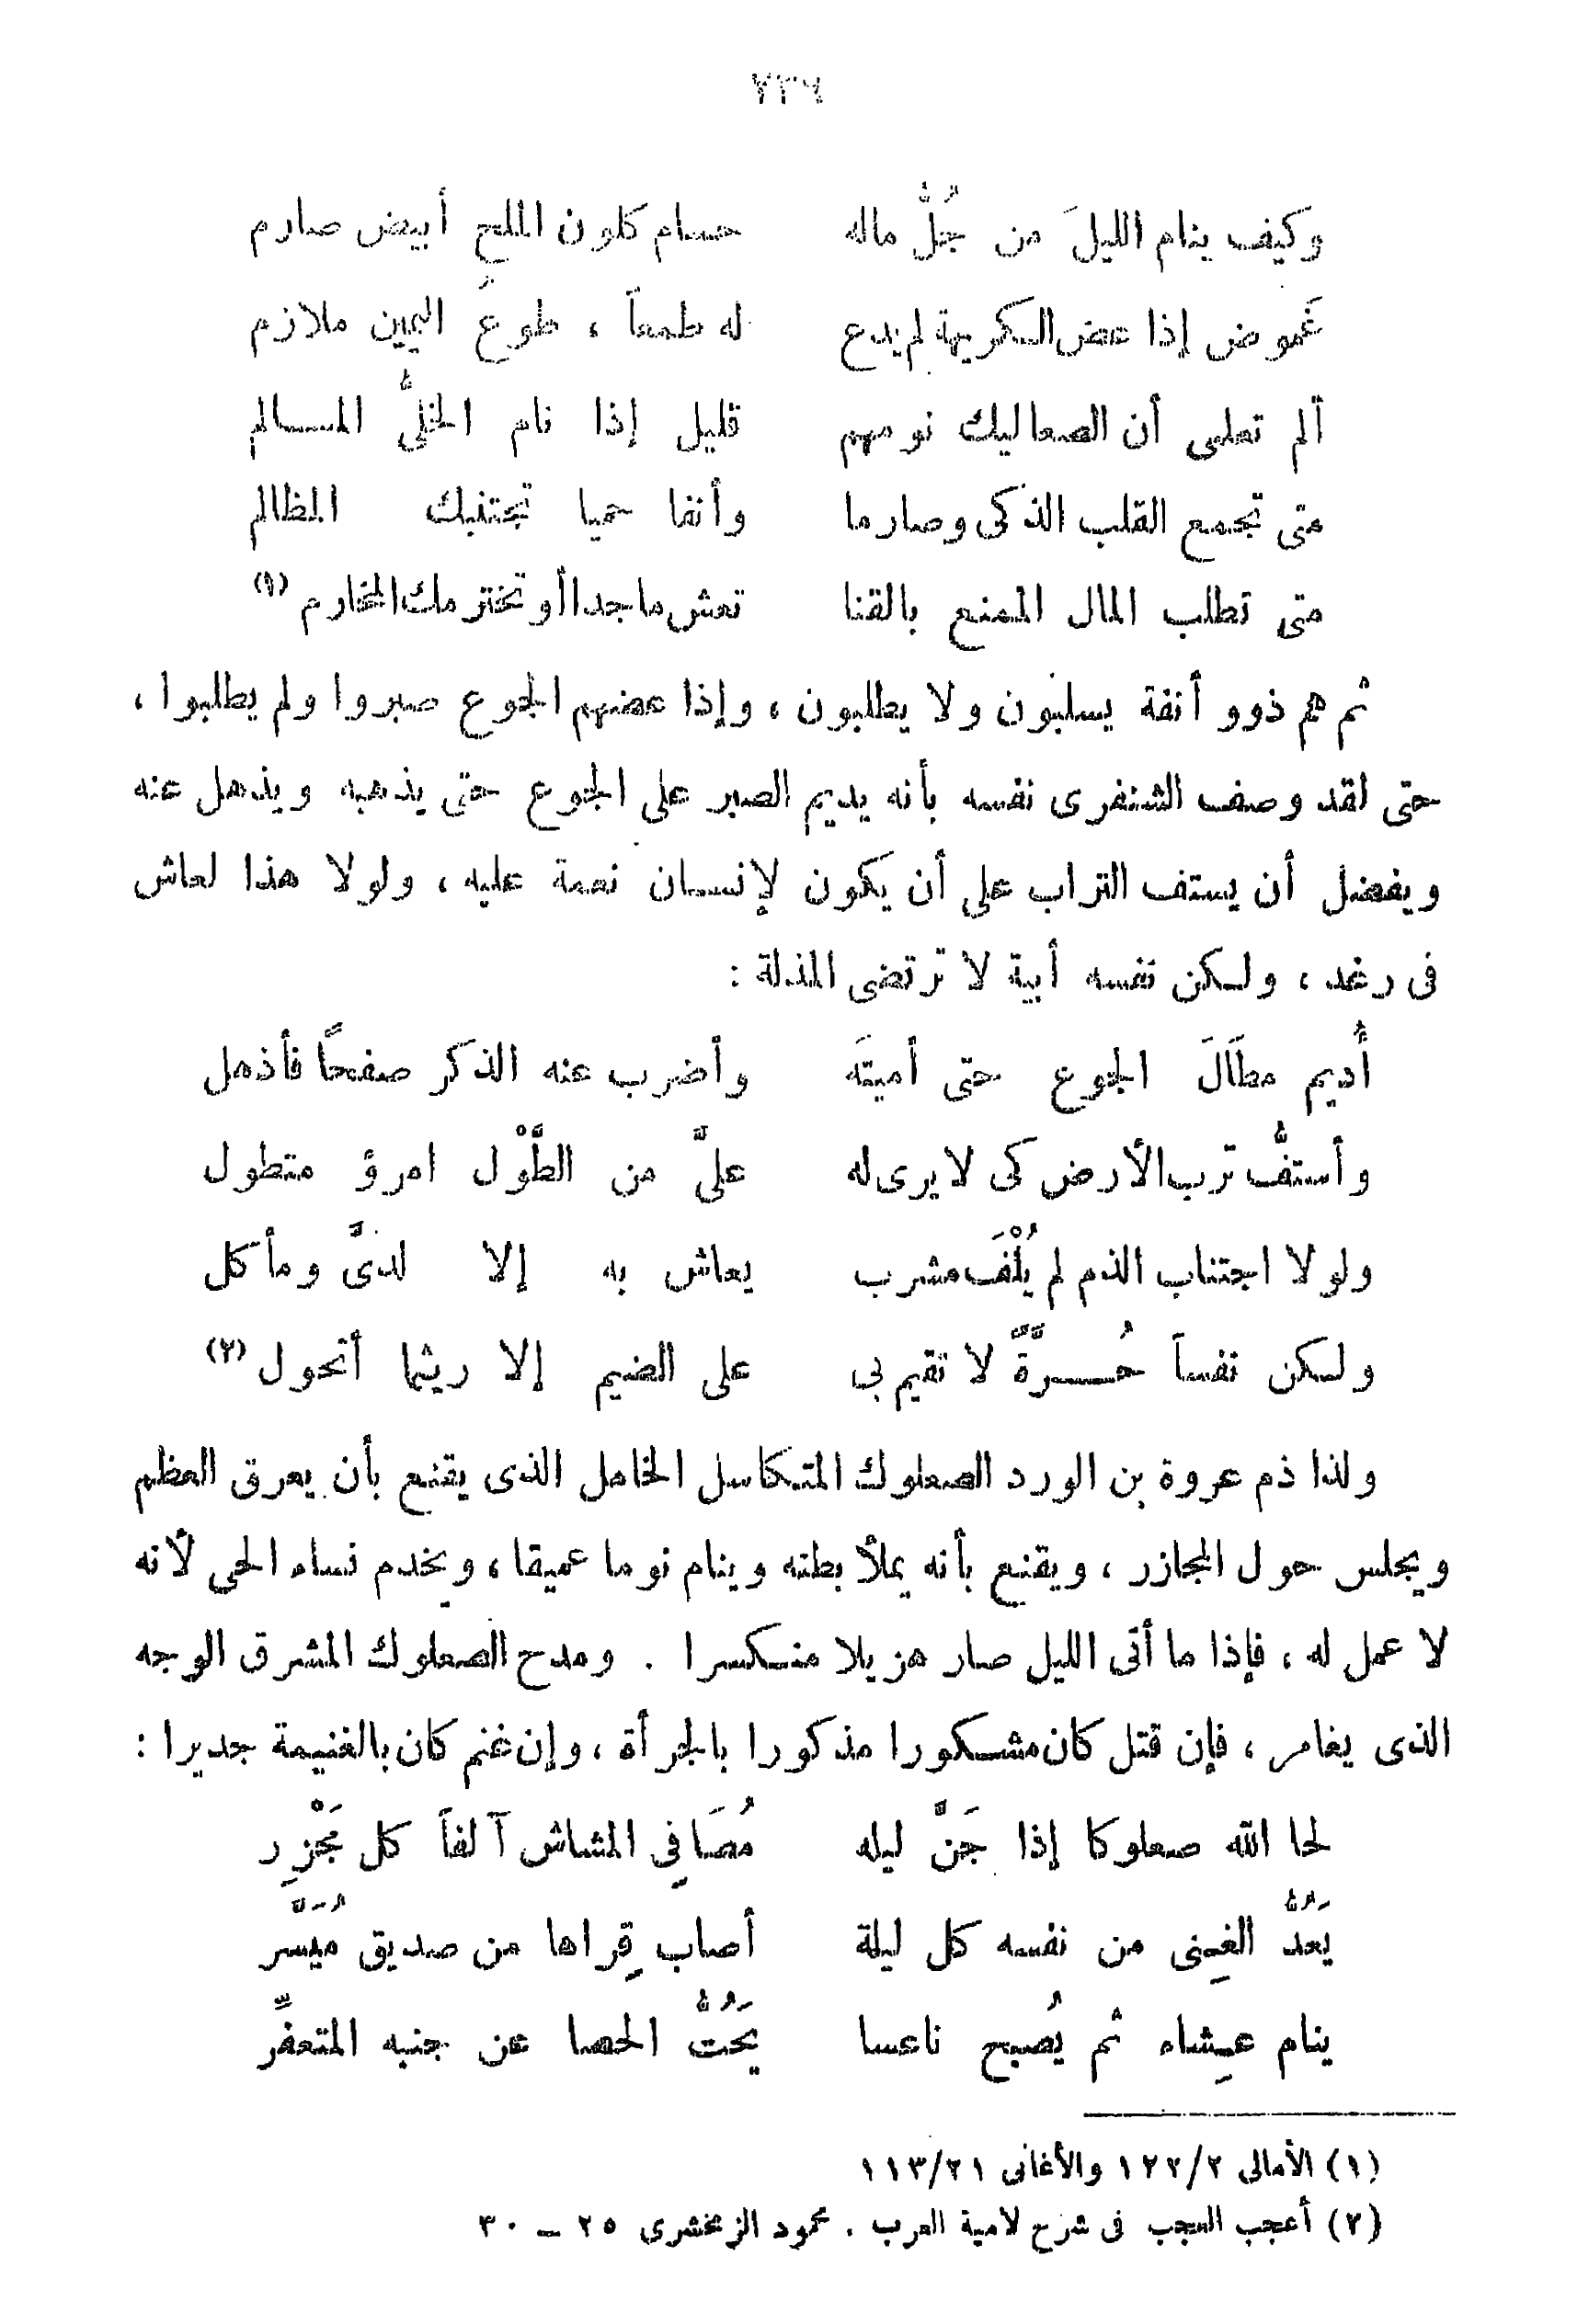 ٢٣٦
وكيف ينام الليلَ من جُلُّ ماله حسام كلون الملح أبيض صارم
غَموض إذا عض الكريهة لم يدع له طمعاً ، طوعُ اليمين ملازم
ألم تعلمى أن الصعاليك نومهم قليل إذا نام الخلىُّ المسالم
متى تجمع القلب الذكى وصارما وأنفا حميا تجتنبك المظالم
متى تطلب المال الممنع بالقنا تعش ماجدا أو تخترمك المخارم (١)
ثم هم ذوو أنفة يسلبون ولا يطلبون ، وإذا عضهم الجوع صبروا ولم يطلبوا ،
حتى لقد وصف الشنفرى نفسه بأنه يديم الصبر على الجوع حتى يذهبه ويذهل عنه
ويفضل أن يستف التراب على أن يكون لإنسان نعمة عليه ، ولولا هذا لعاش
فى رغد ، ولكن نفسه أبية لا ترتضى المذلة :
أُديم مطَالَ الجوع حتى أميتَه وأضرب عنه الذكر صفحًا فأذهل
وأستفُّ ترب الأرض كى لا يرى له علىَّ من الطَّوْل امرؤ متطول
ولولا اجتناب الذم لم يُلْفَ مشرب يعاش به إلا لدىَّ ومأكل
ولكن نفساً حُرَّةً لا تقيم بى على الضيم إلا ريثما أتحول (٢)
ولذا ذم عروة بن الورد الصعلوك المتكاسل الخامل الذى يقنع بأن يعرق العظم
ويجلس حول المجازر ، ويقنع بأنه يملأ بطنه وينام نوما عميقا ، ويخدم نساء الحى لأنه
لا عمل له ، فإذا ما أتى الليل صار هزيلا منكسرا . ومدح الصعلوك المشرق الوجه
الذى يغامر ، فإن قتل كان مشكورا مذكورا بالجرأة ، وإن غنم كان بالغنيمة جديرا :
لحا الله صعلوكا إذا جَنَّ ليله مُصَافِي المشاش آلفاً كل مَجْزِر
يَعُدُّ الغِنى من نفسه كل ليلة أصاب قِراها من صديق مُيَسَّر
ينام عِشاء ثم يُصبح ناعسا يَحُتُّ الحصا عن جنبه المتعفِّر
(١) الأمالى ١٢٢/٢ والأغانى ١١٣/٢١
(٢) أعجب العجب فى شرح لامية العرب . محمود الزمخشرى ٢٥ – ٣٠